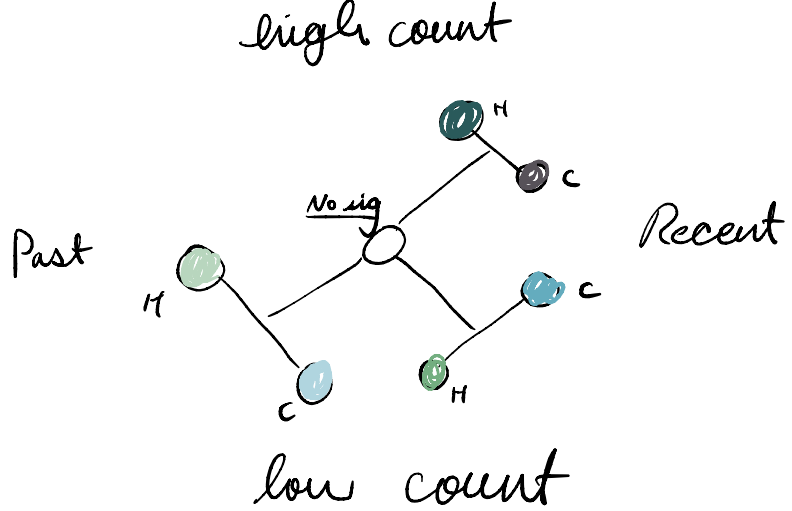 high count
H
C
No sig
Past
Recent
H
C
C
H
low count